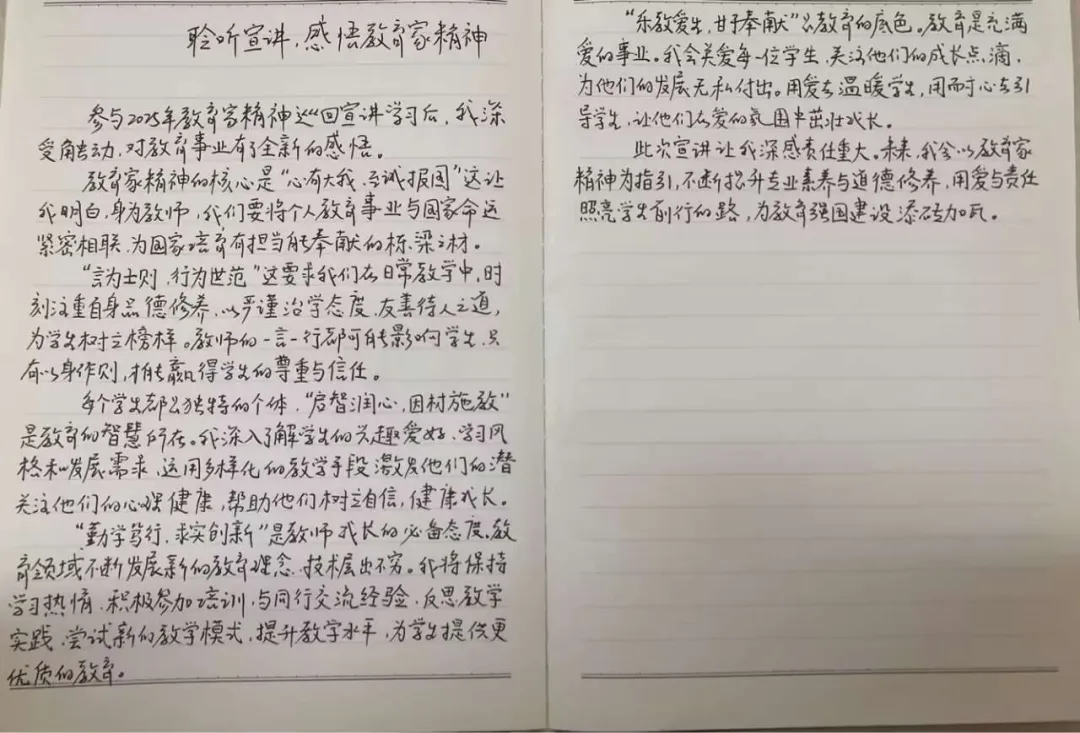 聆听宣讲,感悟教育家精神
参与2025年教育家精神巡回宣讲学习后,我深
受触动,对教育事业有了全新的感悟。
教育家精神的核心是"心有大我、至诚报国"这让
我明白,身为教师,我们要将个人教育事业与国家命运
紧密相联,为国家培育有担当能奉献的栋梁之材。
"言为士则,行为世范"这要求我们在日常教学中,时
刻注重自身品德修养,以严谨治学态度、友善待人之道,
为学生树立榜样。教师的一言一行都可能影响学生,只
有以身作则,才能赢得学生的尊重与信任。
每个学生都是独特的个体,"启智润心,因材施教"
是教育的智慧所在。我深入了解学生的兴趣爱好、学习风
格和发展需求,运用多样化的教学手段激发他们的潜
关注他们的心理健康,帮助他们树立自信,健康成长。
"勤学笃行、求实创新"是教师成长的必备态度。教
育领域不断发展新的教育理念、技术层出不穷。我将保持
学习热情,积极参加培训,与同行交流经验,反思教学
实践、尝试新的教学模式,提升教学水平,为学生提供更
优质的教育。
"乐教爱生,甘于奉献"是教育的底色。教育是充满
爱的事业。我会关爱每一位学生,关注他们的成长点滴,
为他们的发展无私付出。用爱去温暖学生,用耐心去引
导学生,让他们在爱的氛围中茁壮成长。
此次宣讲让我深感责任重大。未来,我会以教育家
精神为指引,不断提升专业素养与道德修养,用爱与责任
照亮学生前行的路,为教育强国建设添砖加瓦。